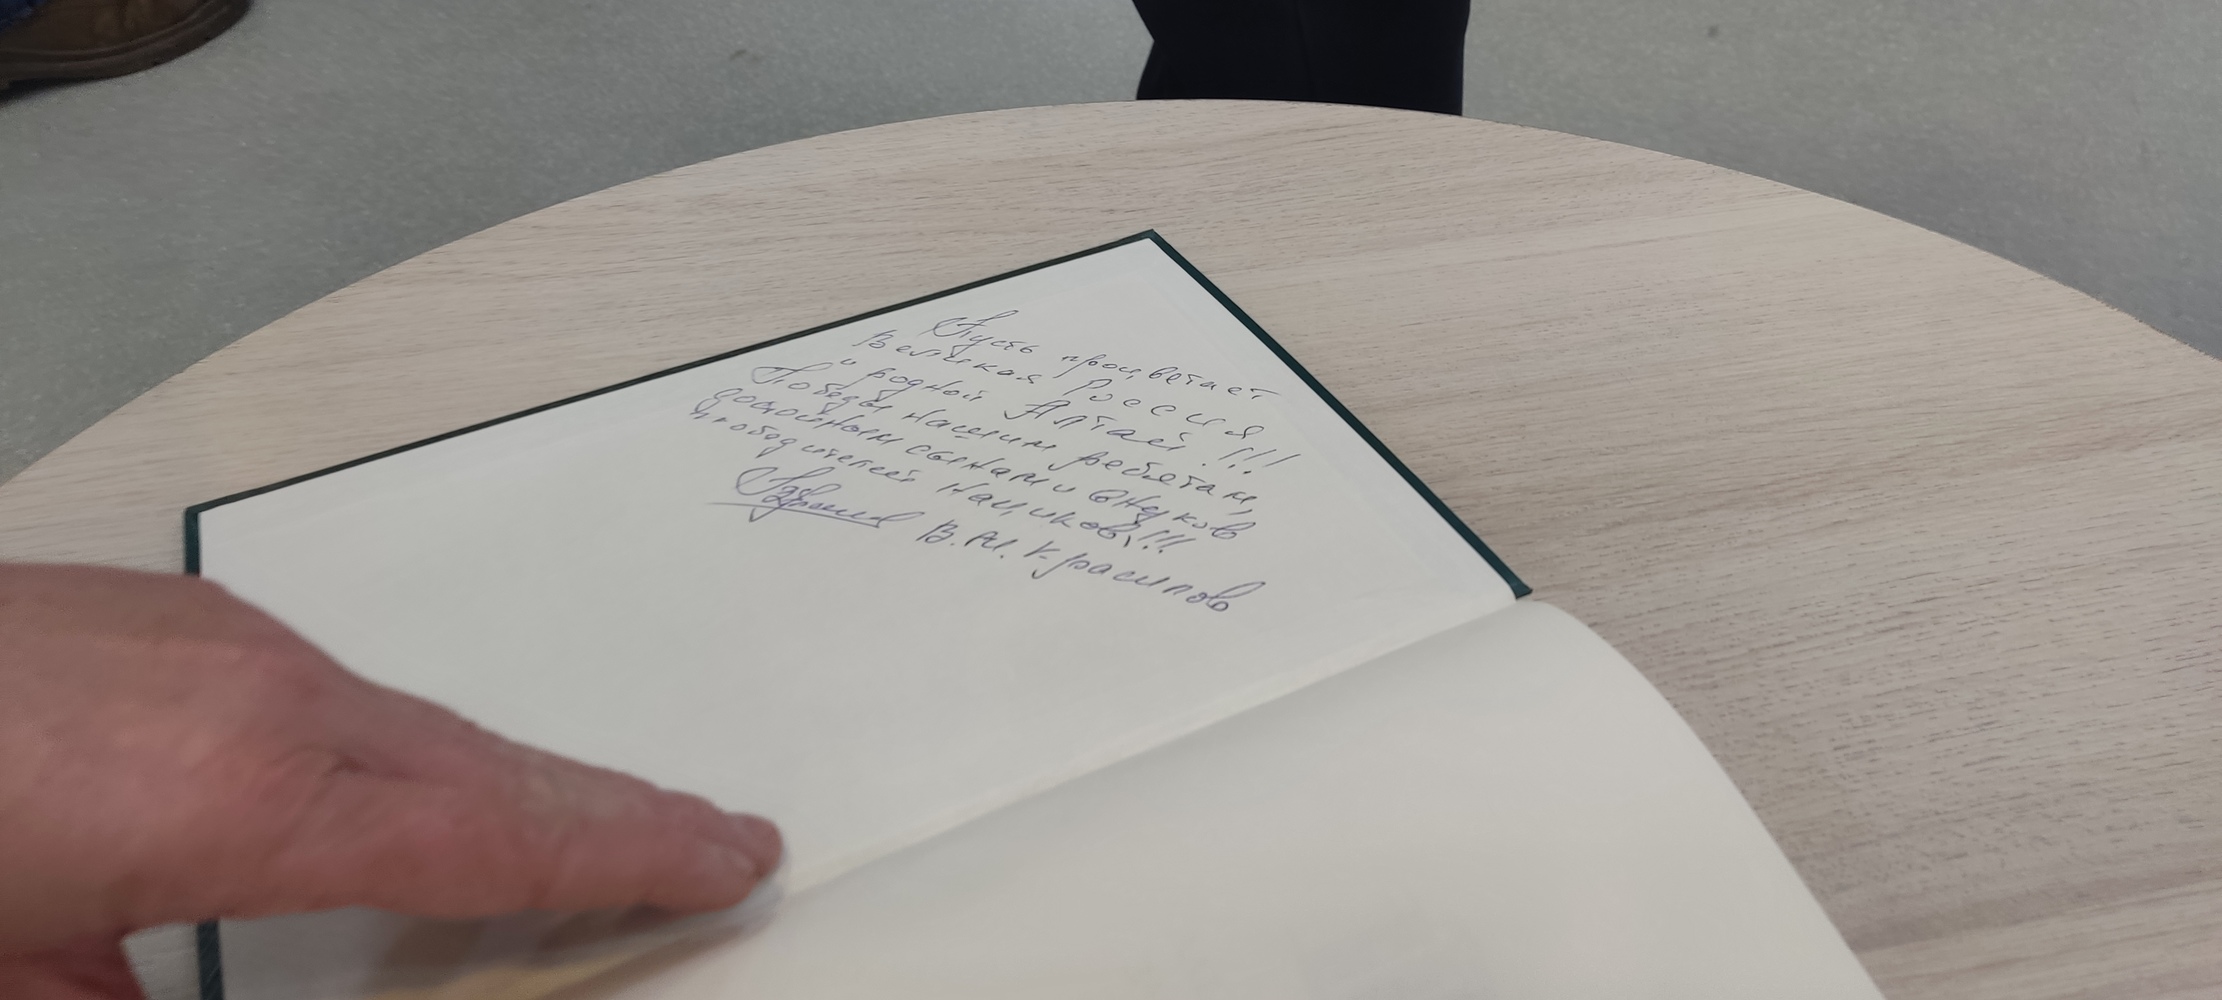 Пусть процветает
Великая Россия
и родной Алтай!!!
Победы нашим ребятам,
достойным сынам и внуков
победителей нациков!!!
В.М. Красилов